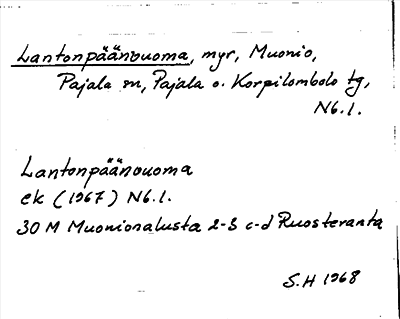 Lantonpäänvuoma, myr, Muonio,
Pajala sn, Pajala o. Korpilombolo tg,
Nb.l.
Lantonpäänvuoma
ek (1967) Nb.l.
30 M Muonionalusta 2-3 c-d Ruosteranta
S.H 1968